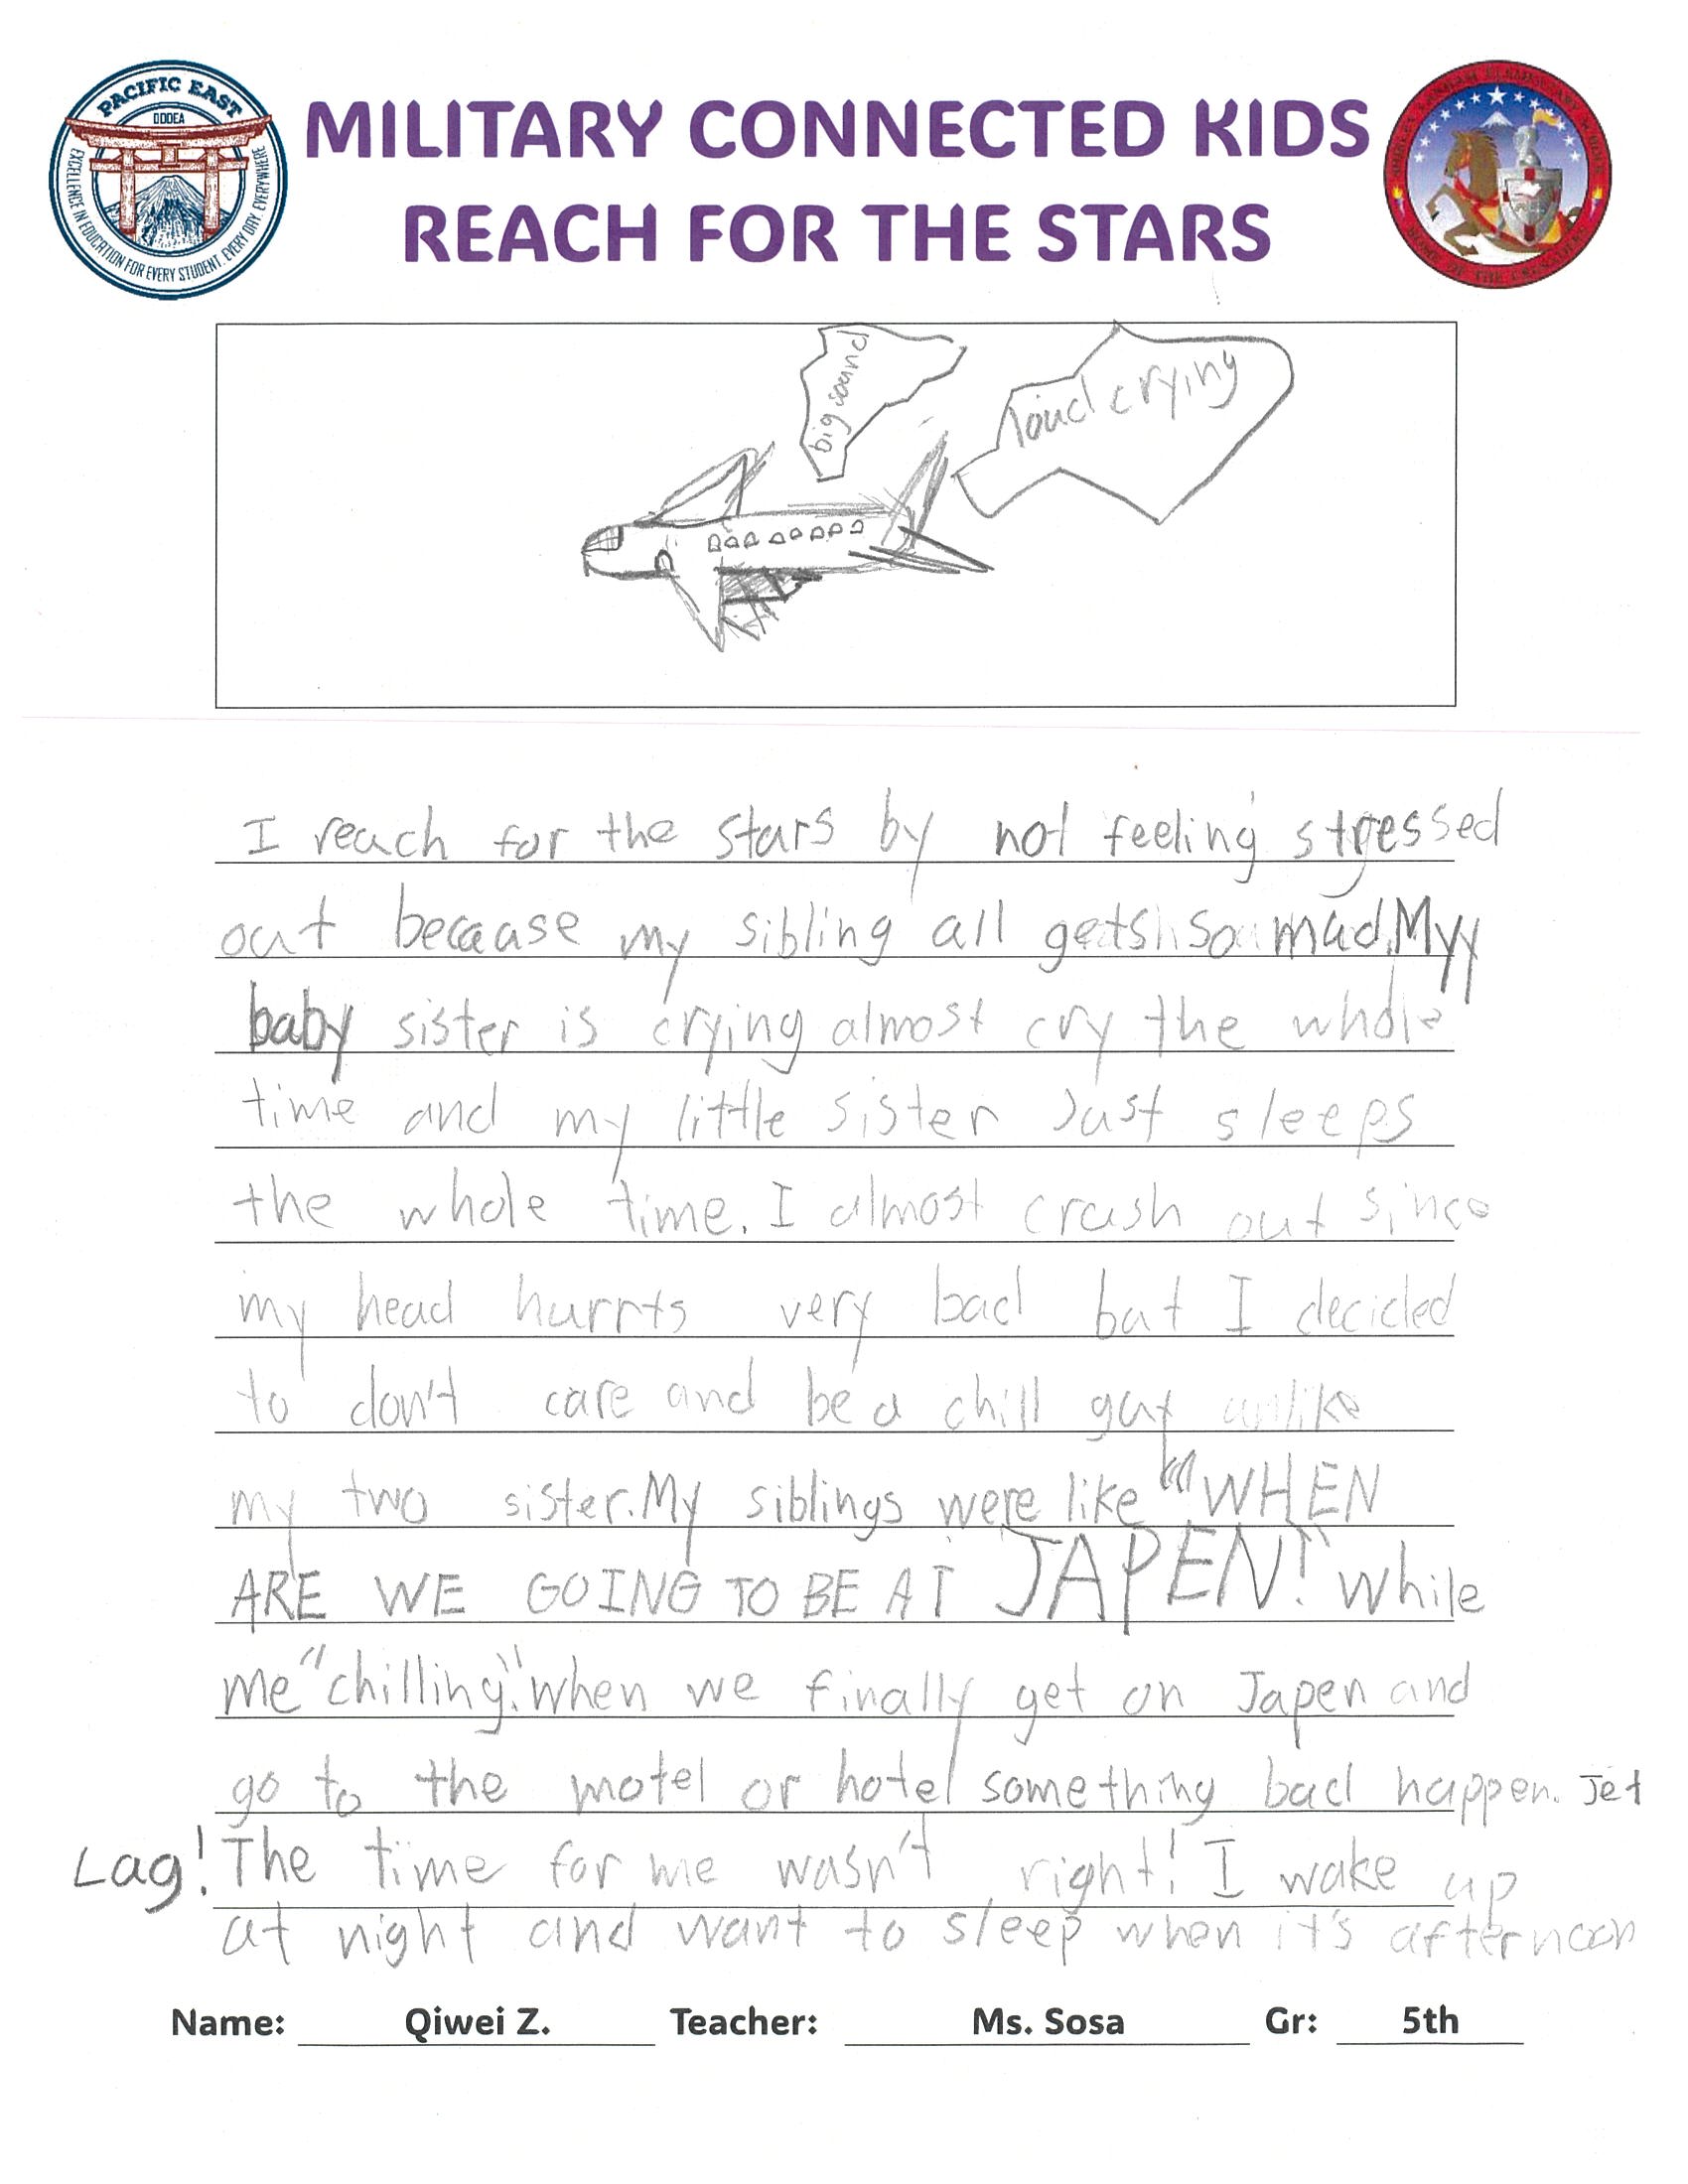 PACIFIC EAST
DODEA
EXCELLENCE IN EDUCATION FOR EVERY STUDENT, EVERY DAY, EVERYWHERE
MILITARY CONNECTED KIDS
REACH FOR THE STARS
big sound
loud crying
I reach for the stars by not feeling stressed
out becaause my sibling all gets so mad. Myy
baby sister is crying almost cry the whole
time and my little sister Just sleeps
the whole time. I almost crash out since
my head hurrts very bad but I decided
to don't care and be a chill guy unlike
my two sister. My siblings were like "WHEN
ARE WE GOING TO BE AT JAPEN!" While
me "chilling". when we finally get on Japen and
go to the motel or hotel something bad happen. Jet
Lag! The time for me wasn't right! I wake up
at night and want to sleep when it's afternoon
Name: Qiwei Z. Teacher: Ms. Sosa Gr: 5th